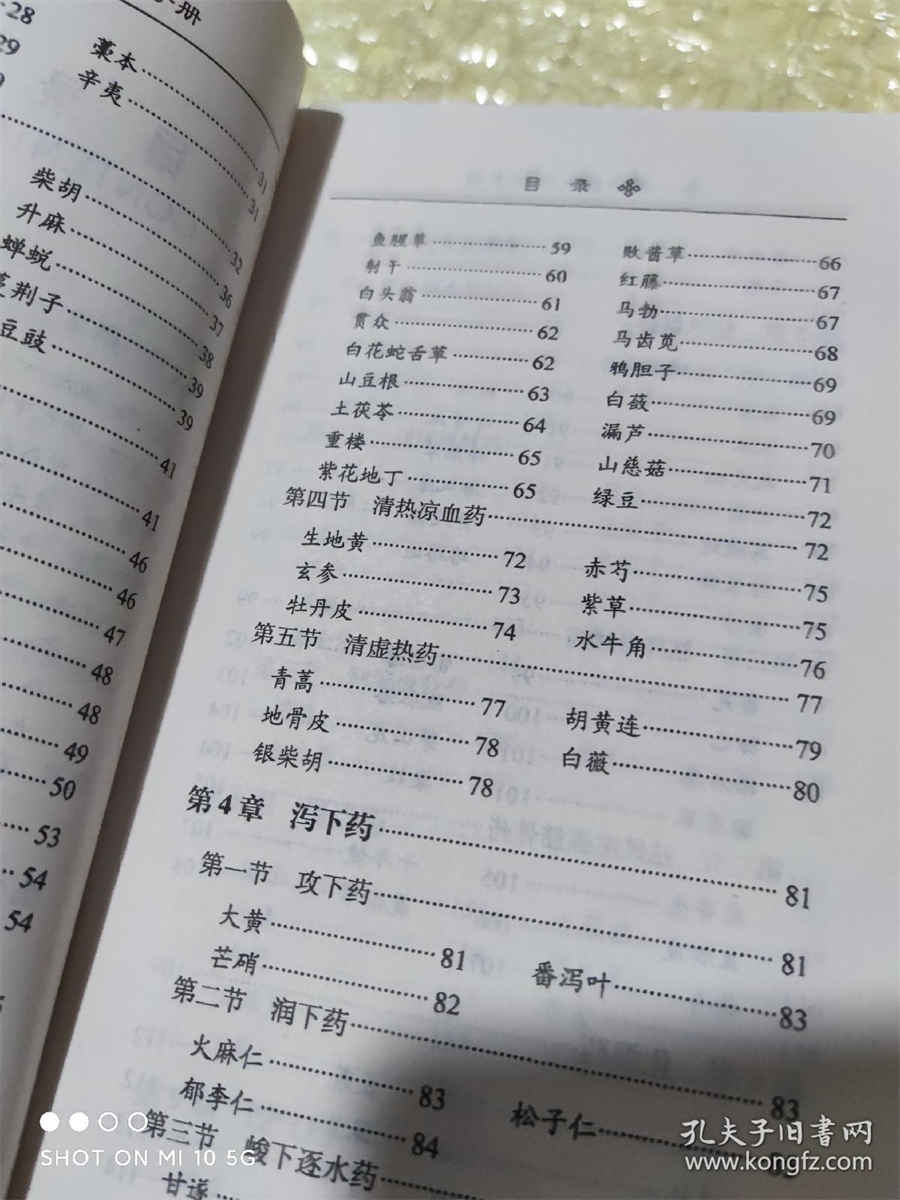 册
28
藁本 31
29
辛夷 31
柴胡 32
升麻 36
蝉蜕 37
荆子 38
豆豉 39
39
41
41
46
46
47
48
48
49
50
53
54
54
目录
鱼腥草 59
射干 60
白头翁 61
贯众 62
白花蛇舌草 62
山豆根 63
土茯苓 64
重楼 65
紫花地丁 65
败酱草 66
红藤 67
马勃 67
马齿苋 68
鸦胆子 69
白蔹 69
漏芦 70
山慈菇 71
绿豆 72
第四节 清热凉血药 72
生地黄 72
玄参 73
牡丹皮 74
赤芍 75
紫草 75
水牛角 76
第五节 清虚热药 77
青蒿 77
地骨皮 78
银柴胡 78
胡黄连 79
白薇 80
第4章 泻下药 81
第一节 攻下药 81
大黄 81
芒硝 82
番泻叶 83
第二节 润下药 83
火麻仁 83
郁李仁 84
松子仁
第三节 峻下逐水药
甘遂
SHOT ON MI 10 5G
孔夫子旧书网
www.kongfz.com